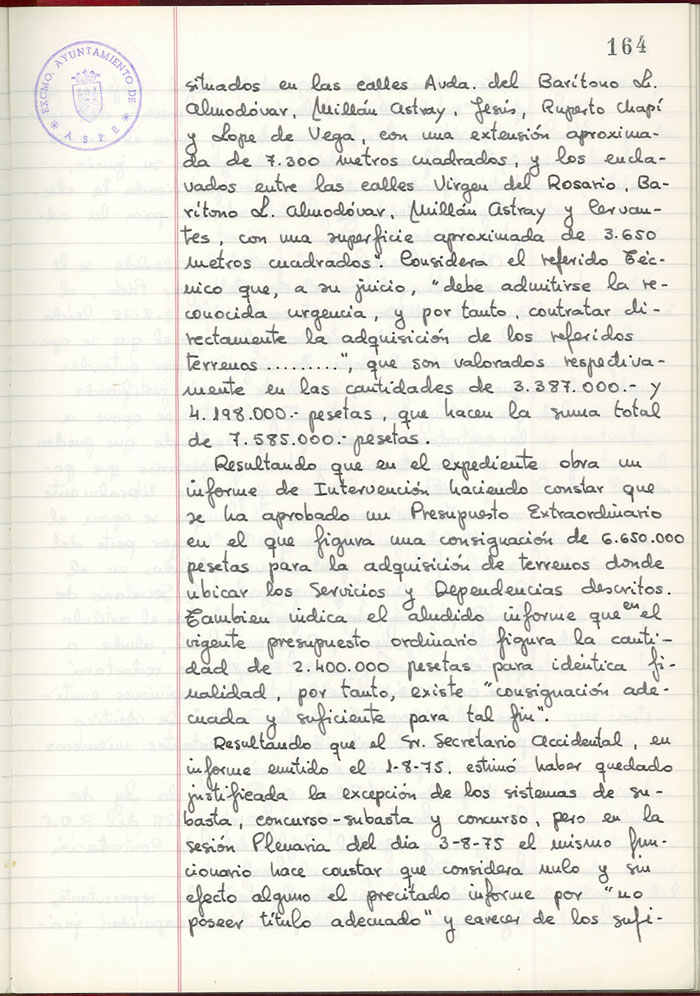 164
EXCMO. AYUNTAMIENTO DE
* ASPE *
situados en las calles Avda. del Barítono L.
Almodóvar, Millán Astray, Jesús, Ruperto Chapí
y Lope de Vega, con una extensión aproxima-
da de 7.300 metros cuadrados, y los encla-
vados entre las calles Virgen del Rosario, Ba-
rítono L. Almodóvar, Millán Astray y Cervan-
tes, con una superficie aproximada de 3.650
metros cuadrados". Considera el referido Téc-
nico que, a su juicio, "debe admitirse la re-
conocida urgencia, y por tanto, contratar di-
rectamente la adquisición de los referidos
terrenos .........", que son valorados respectiva-
mente en las cantidades de 3.387.000.- y
4.198.000.- pesetas, que hacen la suma total
de 7.585.000.- pesetas.
Resultando que en el expediente obra un
informe de Intervención haciendo constar que
se ha aprobado un Presupuesto Extraordinario
en el que figura una consignación de 6.650.000
pesetas para la adquisición de terrenos donde
ubicar los Servicios y Dependencias descritos.
Tambien indica el aludido informe que en el
vigente presupuesto ordinario figura la canti-
dad de 2.400.000 pesetas para idéntica fi-
nalidad, por tanto, existe "consignación ade-
cuada y suficiente para tal fin".
Resultando que el Sr. Secretario Accidental, en
informe emitido el 1-8-75, estimó haber quedado
justificada la excepción de los sistemas de su-
basta, concurso-subasta y concurso, pero en la
sesión Plenaria del dia 3-8-75 el mismo fun-
cionario hace constar que considera nulo y sin
efecto alguno el precitado informe por "no
poseer título adecuado" y carecer de los sufi-